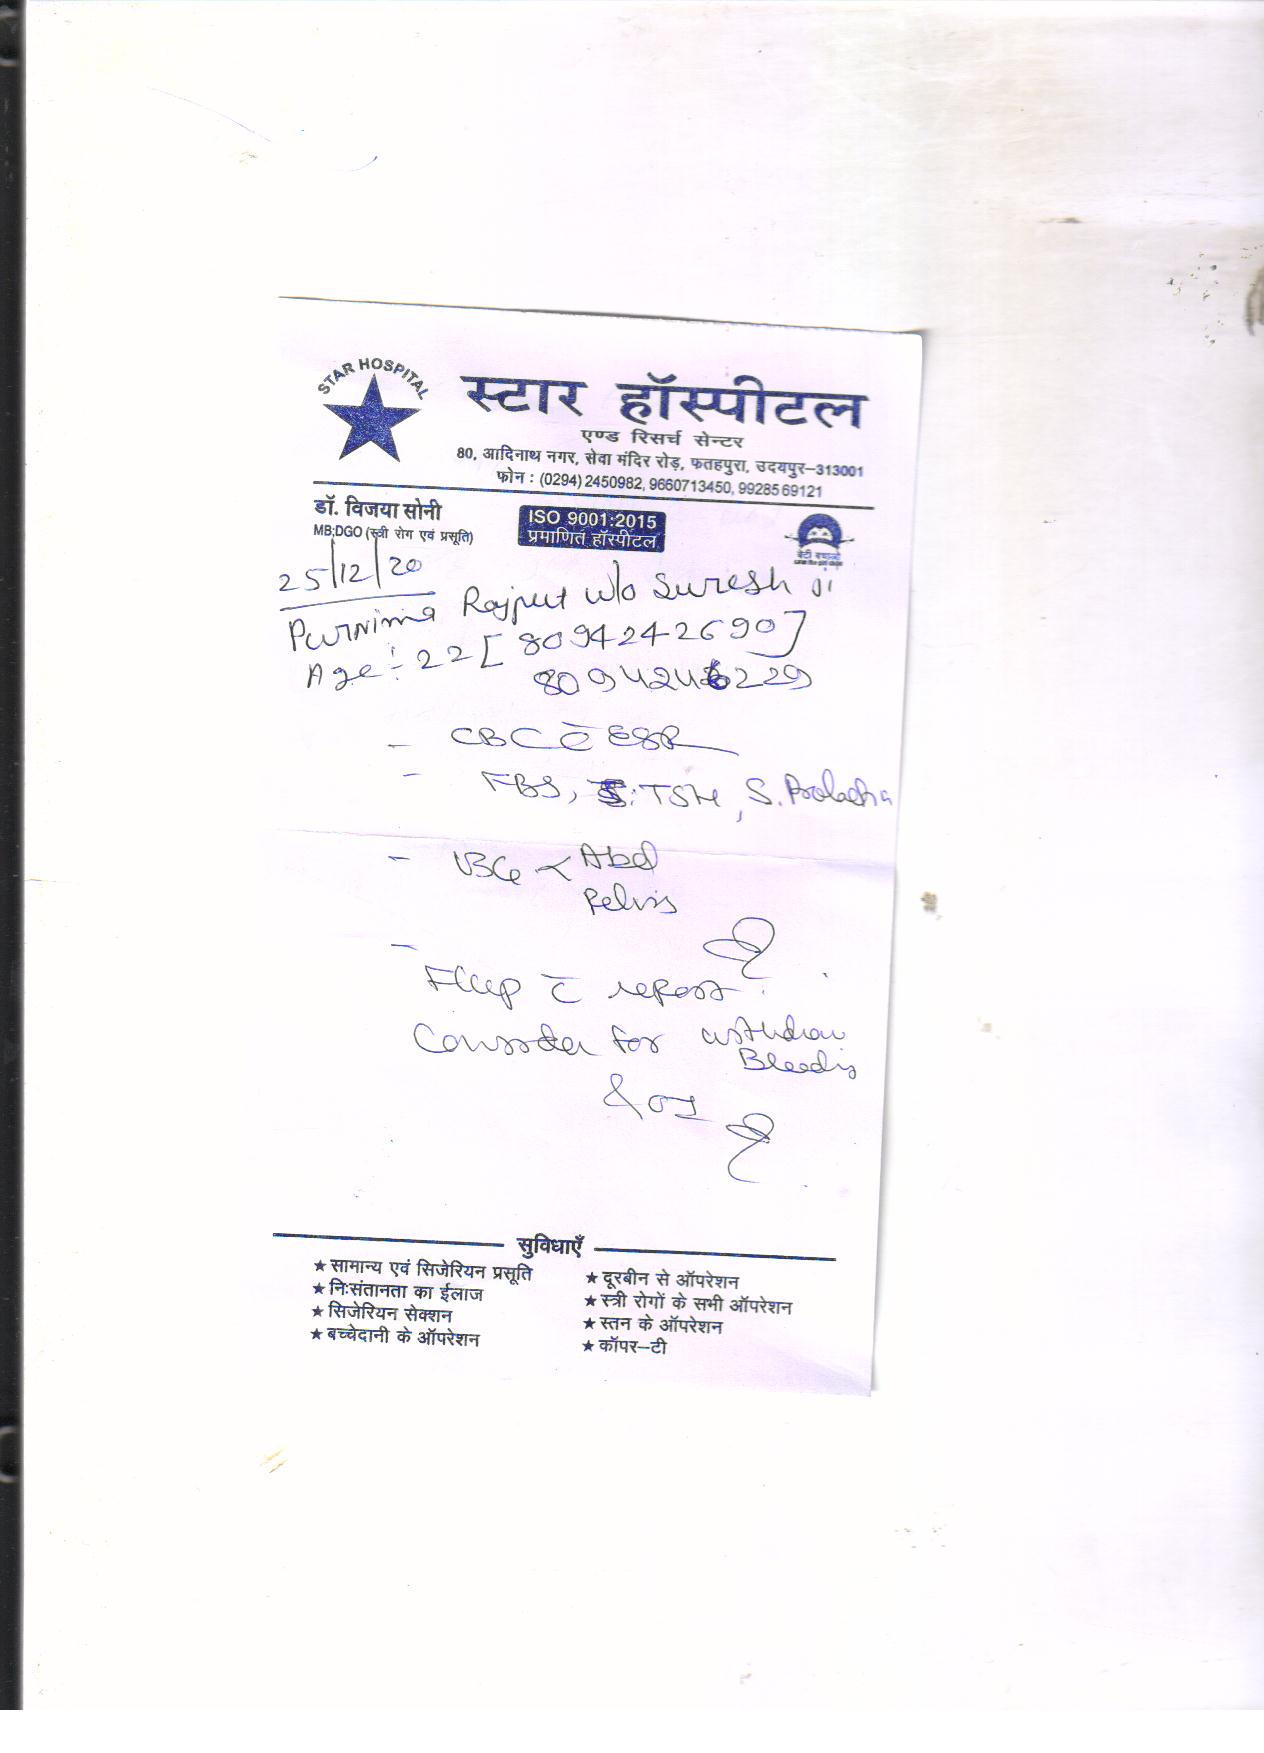 STAR HOSPITAL
स्टार हॉस्पीटल
एण्ड रिसर्च सेन्टर
80, आदिनाथ नगर, सेवा मंदिर रोड़, फतहपुरा, उदयपुर–313001
फोन : (0294) 2450982, 9660713450, 9928569121
डॉ. विजया सोनी
MB;DGO (स्त्री रोग एवं प्रसूति)
ISO 9001:2015
प्रमाणित हॉस्पीटल
25/12/20
Purnima Rajput w/o Suresh Ji
Age :- 22 [8094242690]
- CBC c̄ ESR
- FBS, S. TSH, S. Prolactin
- USG < Abd
Pelvis
- F/up c̄ report
Consider for withdraw
Bleeding
& OI
सुविधाएँ
★ सामान्य एवं सिजेरियन प्रसूति
★ निःसंतानता का ईलाज
★ सिजेरियन सेक्शन
★ बच्चेदानी के ऑपरेशन
★ दूरबीन से ऑपरेशन
★ स्त्री रोगों के सभी ऑपरेशन
★ स्तन के ऑपरेशन
★ कॉपर–टी